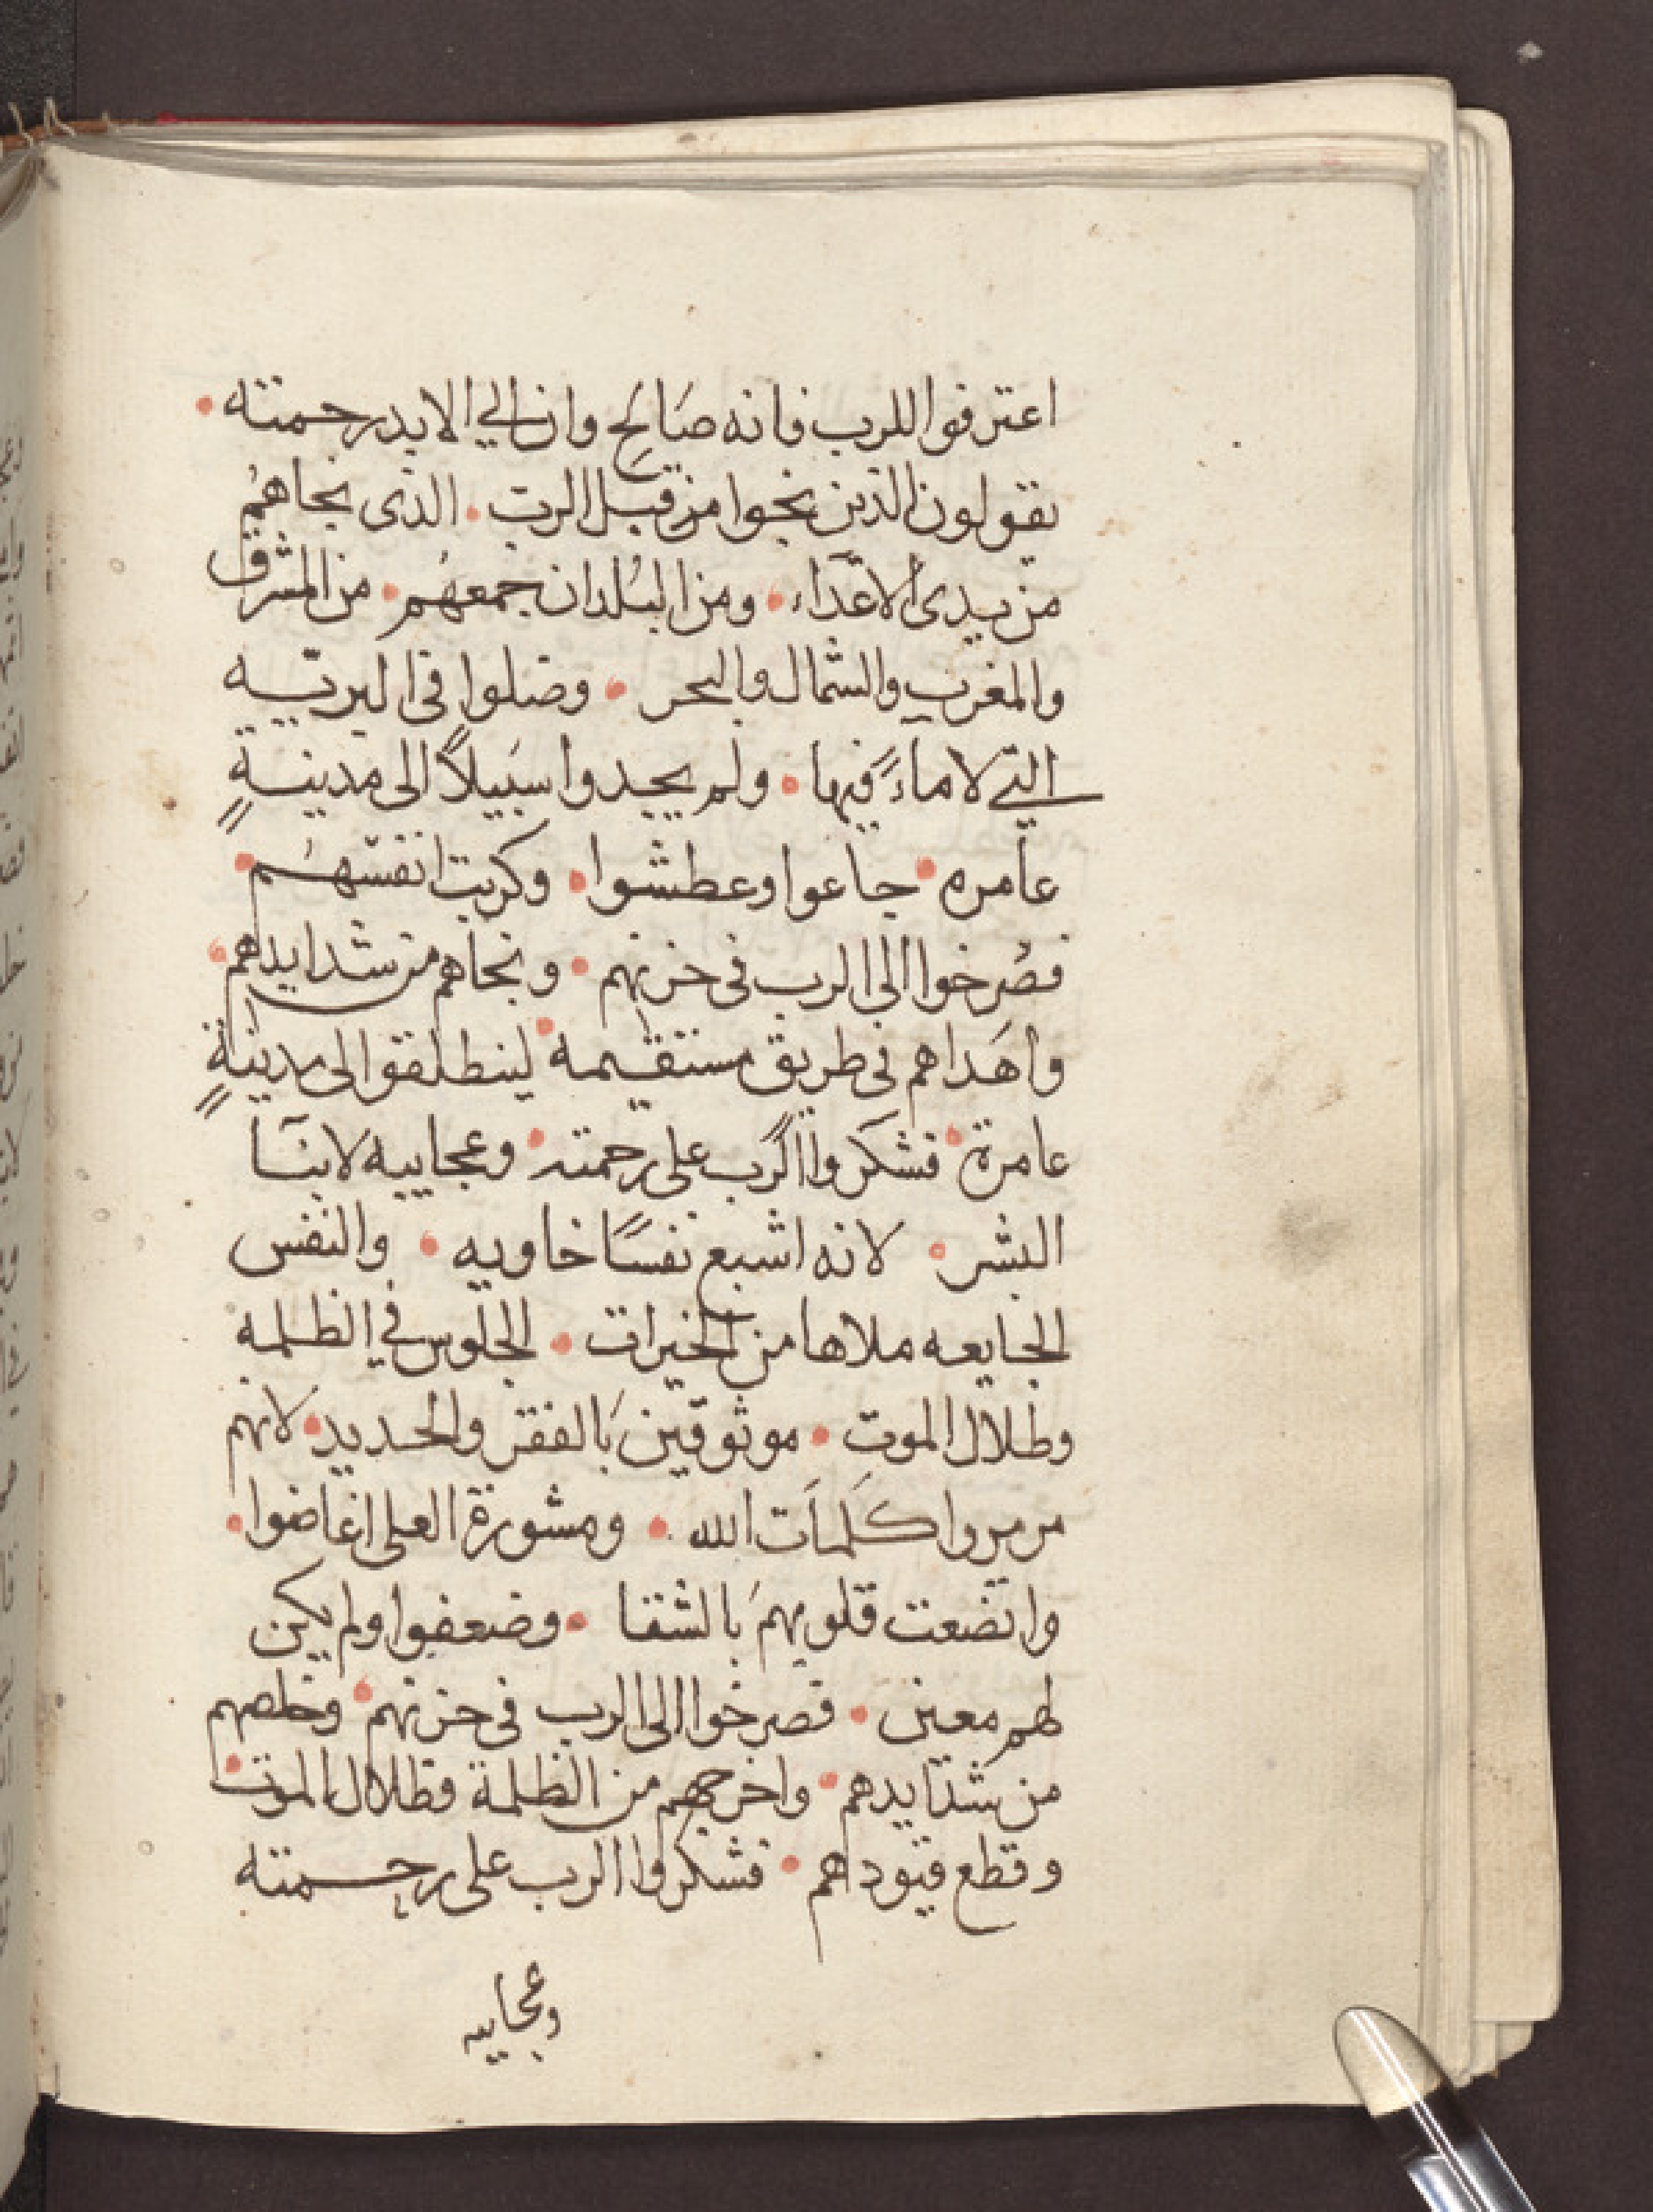 اعترفوا للرب فانه صَالَح وان الي الابد رحمته •
يقولون الذين نجوا من قبل الرب • الذى نجاهُم
من يدى الاعدَاء • ومن البُلدان جمعهُم • من المشرق
والمغرب والشمال والبحر • وضلوا فى البريّيه
التي لا ماءً فيها • ولم يجدوا سَبيلاً الى مدينةٍ
عامره • جاعوا وعطشوا • وكربت انفسهُم •
فصُرخوا الى الرب فى حزنهم • ونجاهم من شدايدهم •
واهَداهم فى طريق مستقيمه • لينطلقوا الى مدينةٍ
عامرة • فشكَروا الرب على رحمته • وعجاييبه لابنآ
البشر • لانه اشبع نفسًا خاويه • والنفس
الجايعه ملاها من الخيرات • الجلوس في الظلمه
وظلال الموت • موثوقين بَالفقر والحديد • لانهم
مرمروا كَلمَات الله • ومشورة العلى اغاضوا •
واتضعت قلوبهمَ بالشقا • وضعفوا ولم يكن
لهم معين • فصرخوا الى الرب فى حزنهم • وخلصهم
من شدَايدهم • واخرجهم من الظلمة وظلال الموت •
وقطع قيودهم • فشكروا الرب على رحمته
وعجاييه